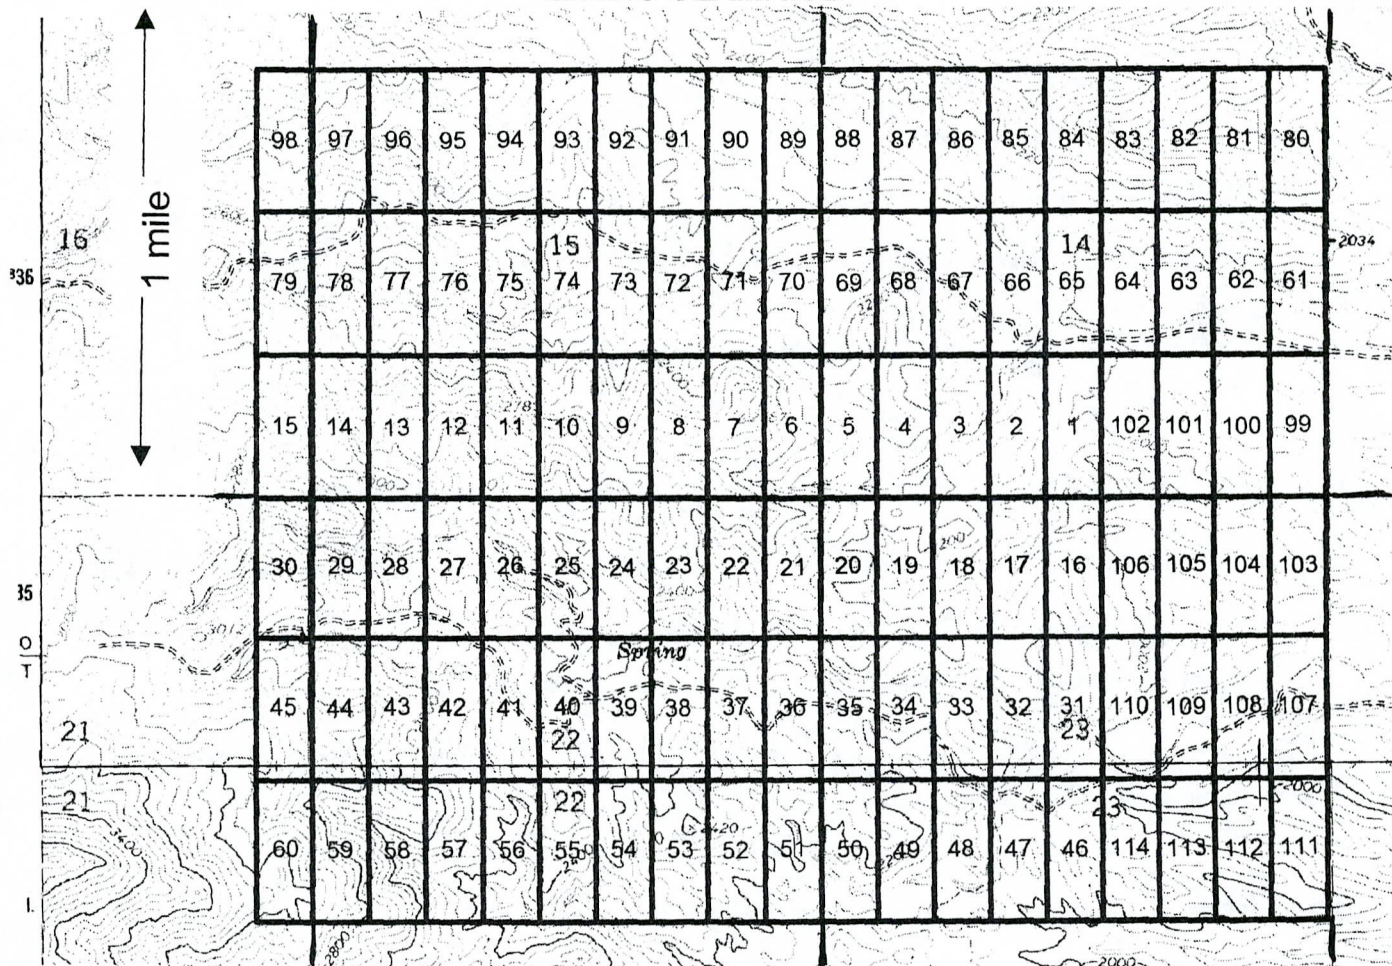 98 97 96 95 94 93 92 91 90 89 88 87 86 85 84 83 82 81 80
1 mile
16 15 14 2034
336 79 78 77 76 75 74 73 72 71 70 69 68 67 66 65 64 63 62 61
15 14 13 12 11 10 9 8 7 6 5 4 3 2 1 102 101 100 99
30 29 28 27 26 25 24 23 22 21 20 19 18 17 16 106 105 104 103
35
3012
O
T
Spring
45 44 43 42 41 40 39 38 37 36 35 34 33 32 31 110 109 108 107
21 22 23
21 22 23 2000
2420
60 59 58 57 56 55 54 53 52 51 50 49 48 47 46 114 113 112 111
3400
I.
2800 2000